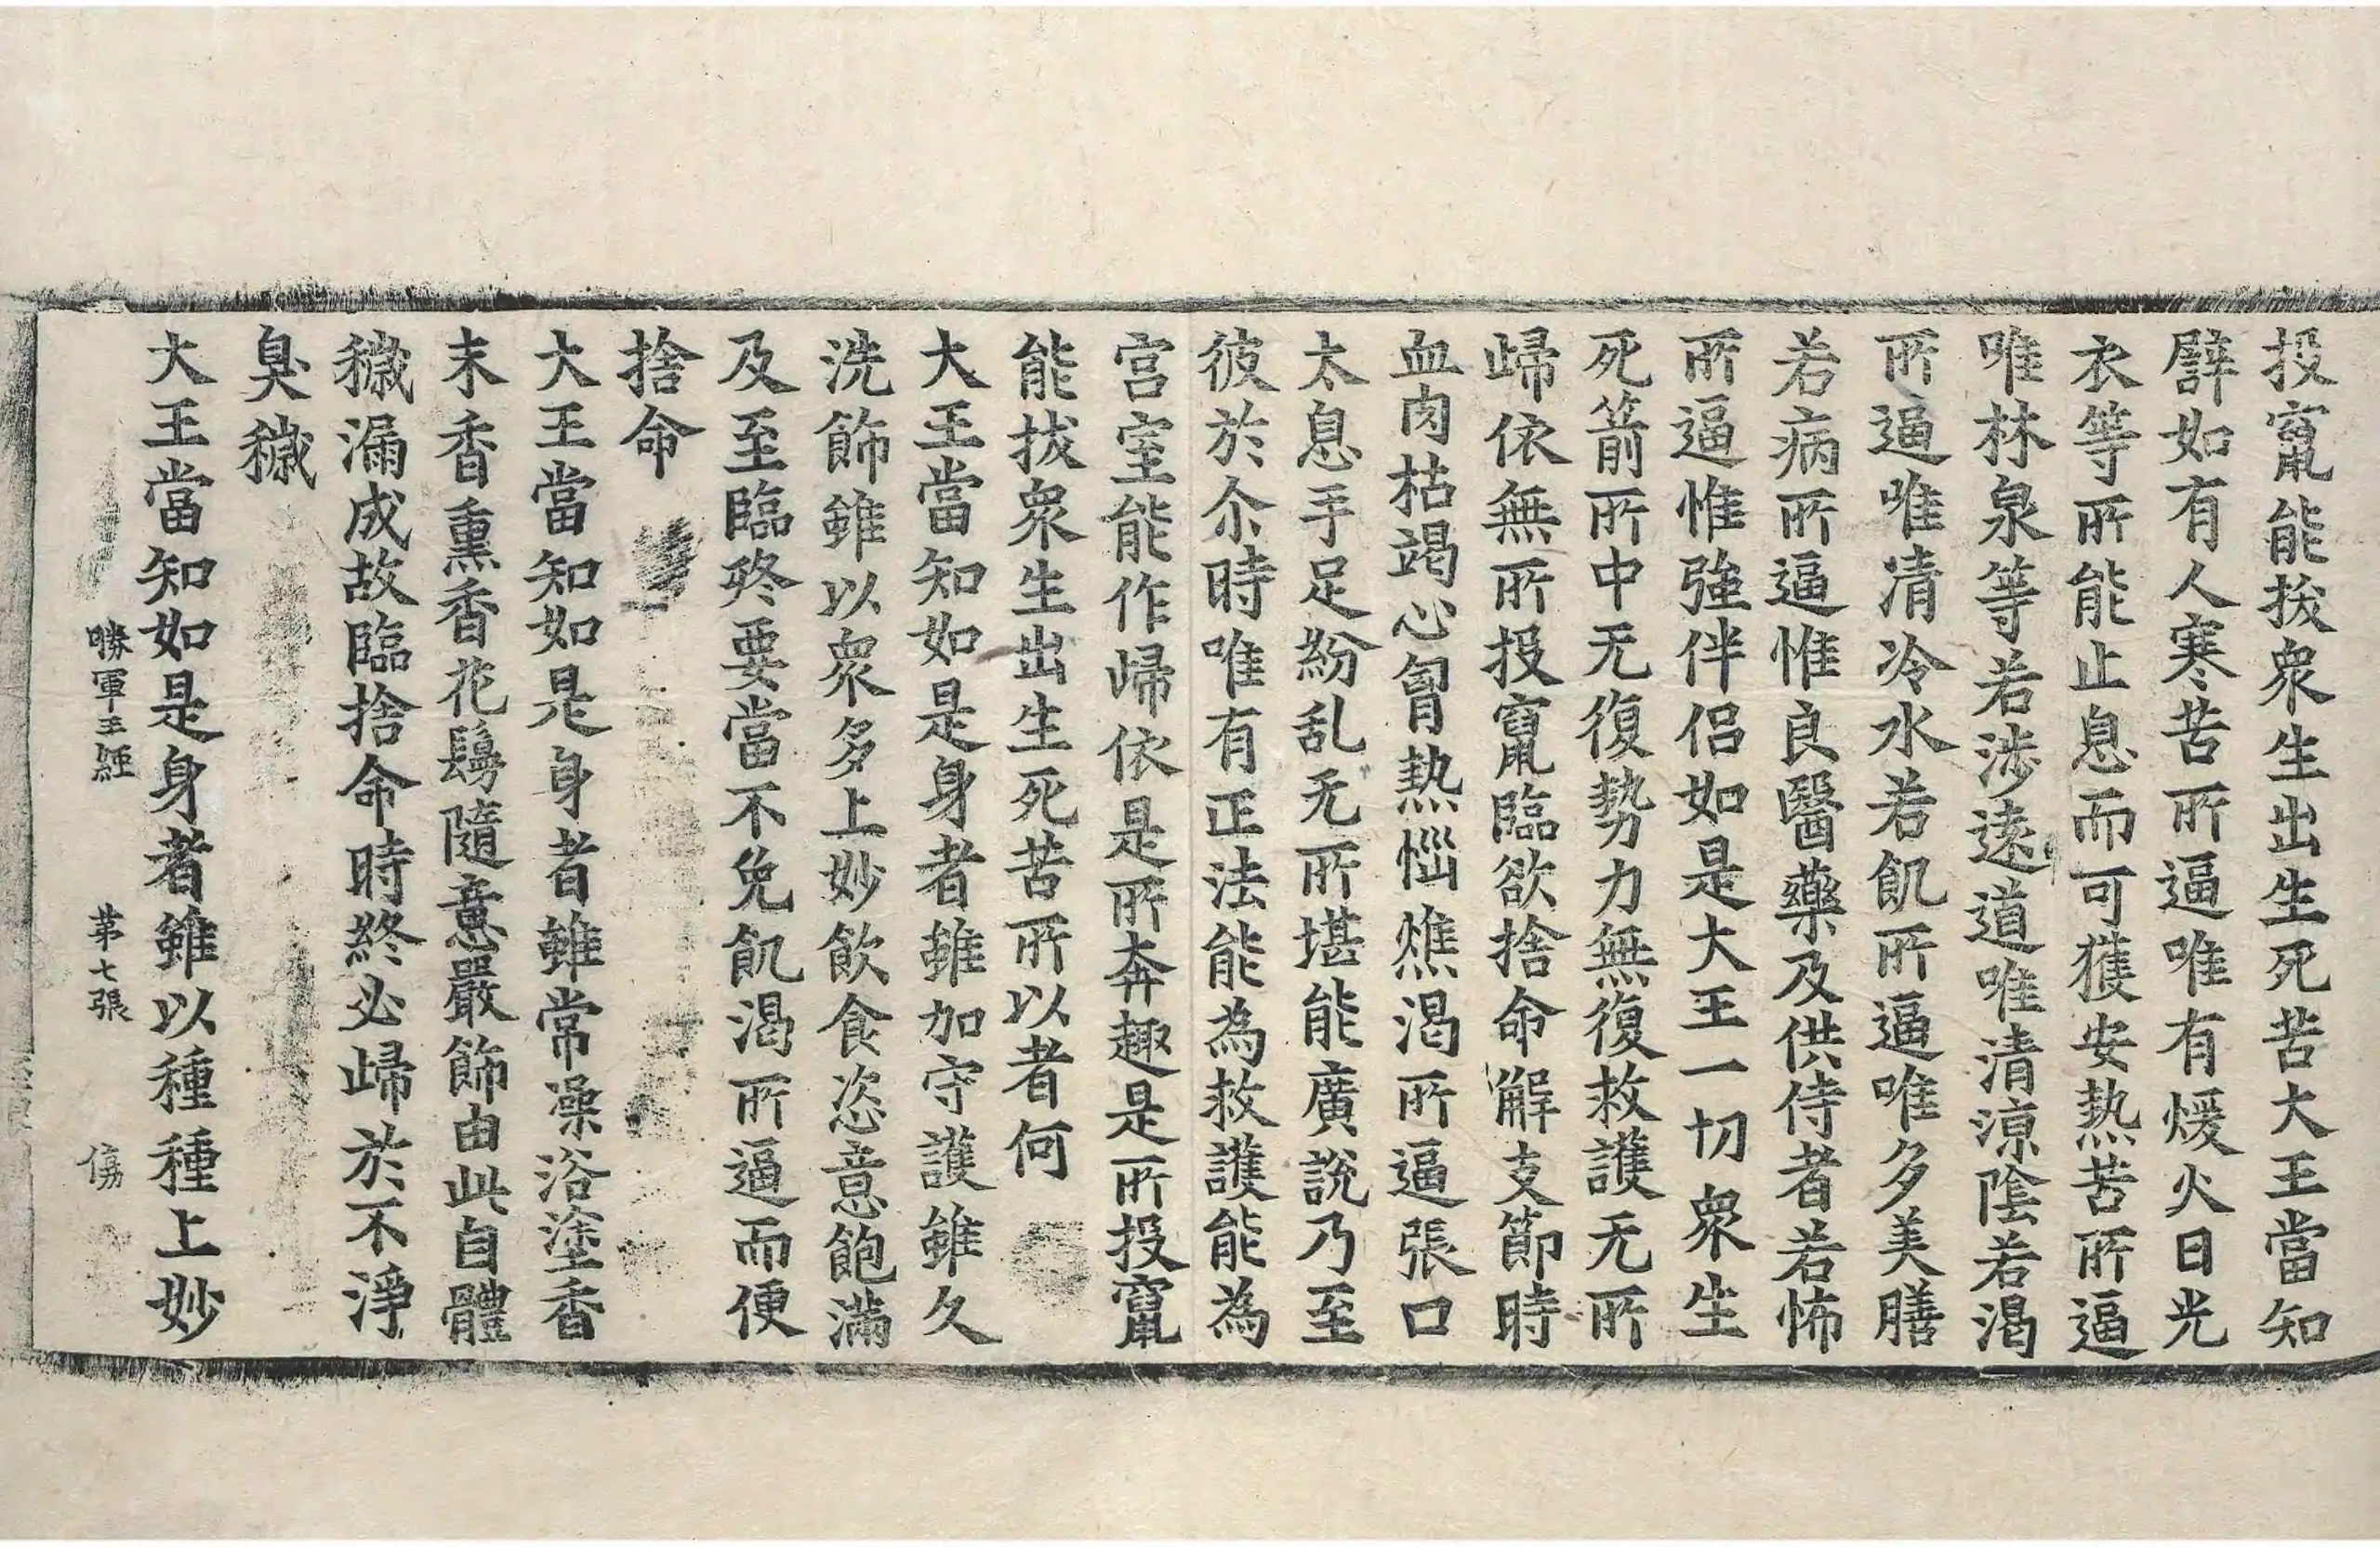 投竄能拔衆生出生死苦大王當知
譬如有人寒苦所逼唯有煖火日光
衣等所能止息而可獲安熱苦所逼
唯林泉等若涉遠道唯清涼陰若渴
所逼唯清冷水若飢所逼唯多美膳
若病所逼惟良醫藥及供侍者若怖
所逼惟強伴侶如是大王一切衆生
死箭所中无復勢力無復救護无所
歸依無所投竄臨欲捨命解支節時
血肉枯竭心胷熱惱燋渴所逼張口
太息手足紛乱无所堪能廣說乃至
彼於尒時唯有正法能為救護能為
宮室能作歸依是所奔趣是所投竄
能拔衆生出生死苦所以者何
大王當知如是身者雖加守護雖久
洗飾雖以衆多上妙飲食恣意飽滿
及至臨終要當不免飢渴所逼而便
捨命
大王當知如是身者雖常澡浴塗香
末香熏香花鬘隨意嚴飾由此自體
穢漏成故臨捨命時終必歸於不淨
臭穢
大王當知如是身者雖以種種上妙
勝軍王經 苐七張